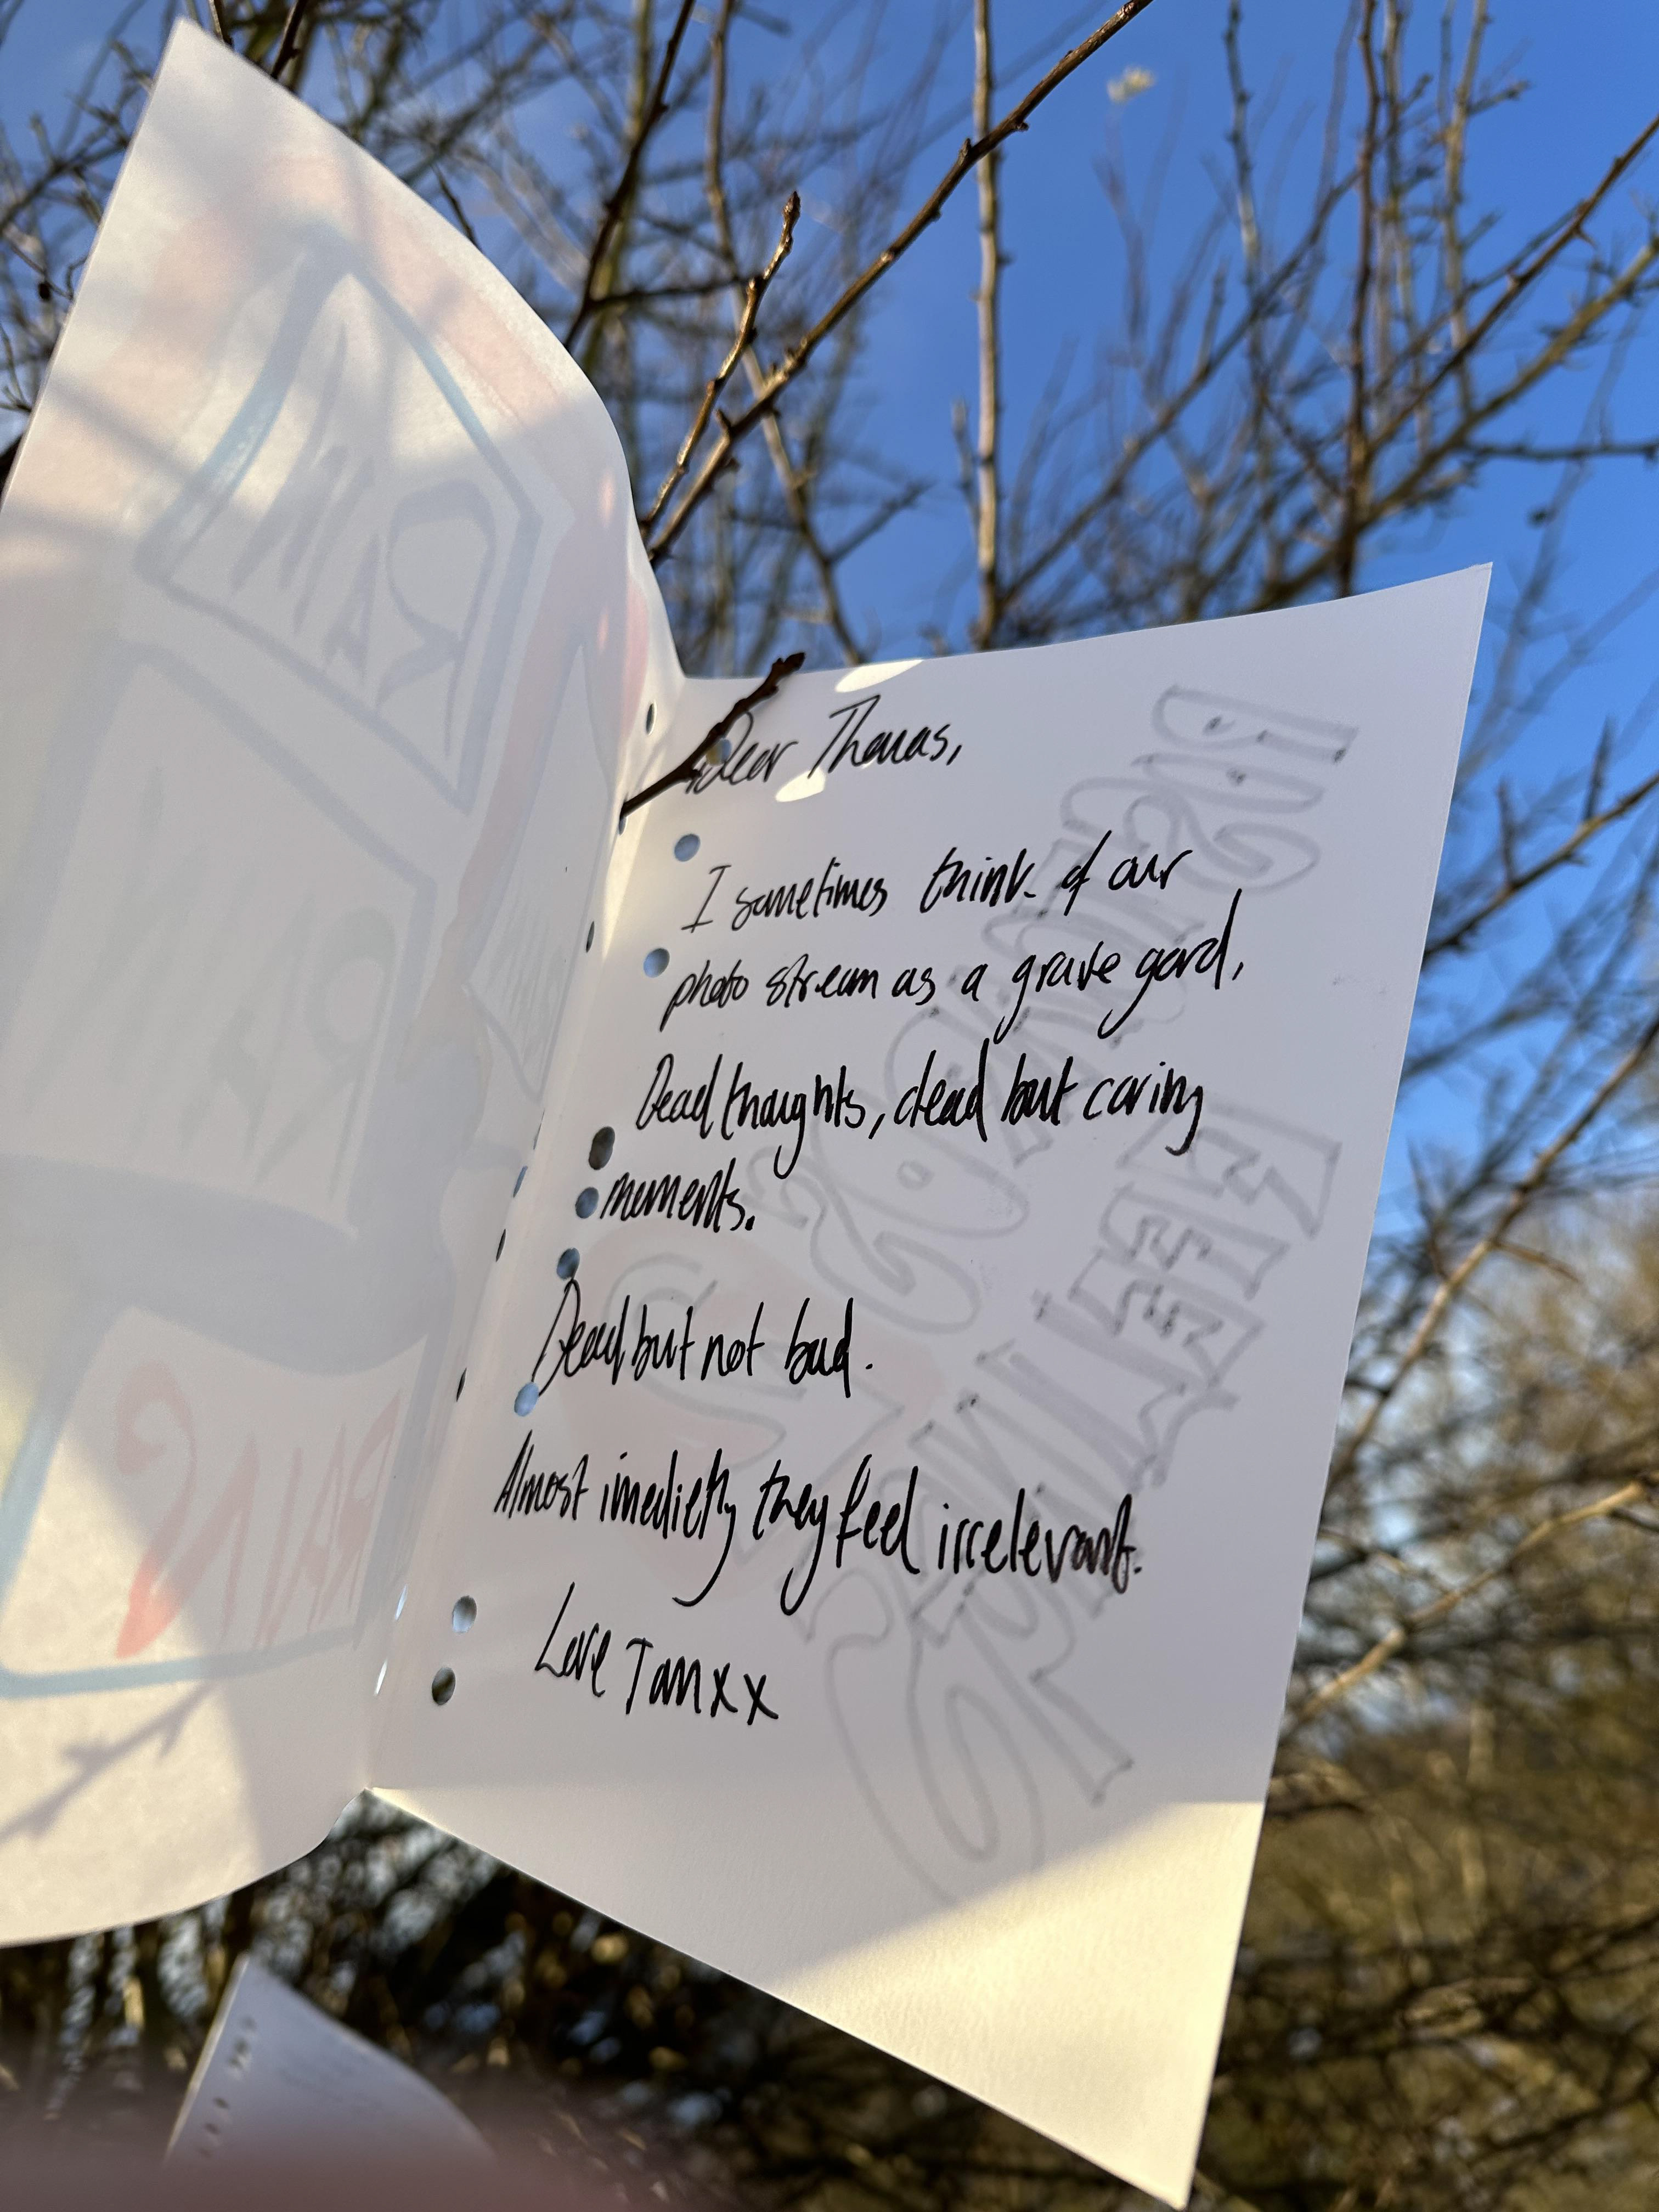 Dear Thomas,
I sometimes think of our
photo stream as a grave yard,
Dead thoughts, dead but caring
moments.
Dead but not bad.
Almost imedietly they feel irrelevant.
Love Tam xx
RAIN
RAIN
RAINS